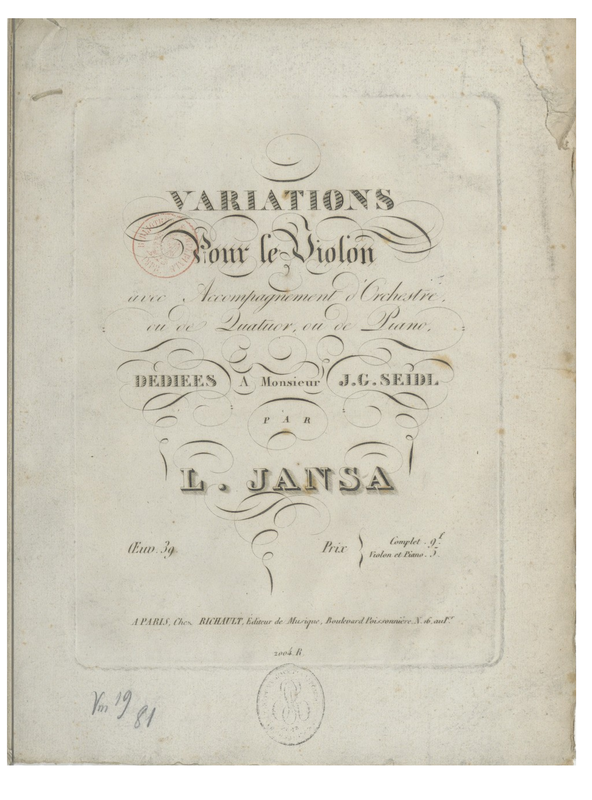 VARIATIONS
Pour le Violon
avec Accompagnement d'Orchestre,
ou de Quatuor, ou de Piano,
DÉDIÉES A Monsieur J.G. SEIDL
PAR
L. JANSA
Œuv. 39.
Prix
Complet. 9f
Violon et Piano. 5.
A PARIS, Chez RICHAULT, Editeur de Musique, Boulevard Poissonnière, N. 16. au 1er
2004. R.
Vm 19
81